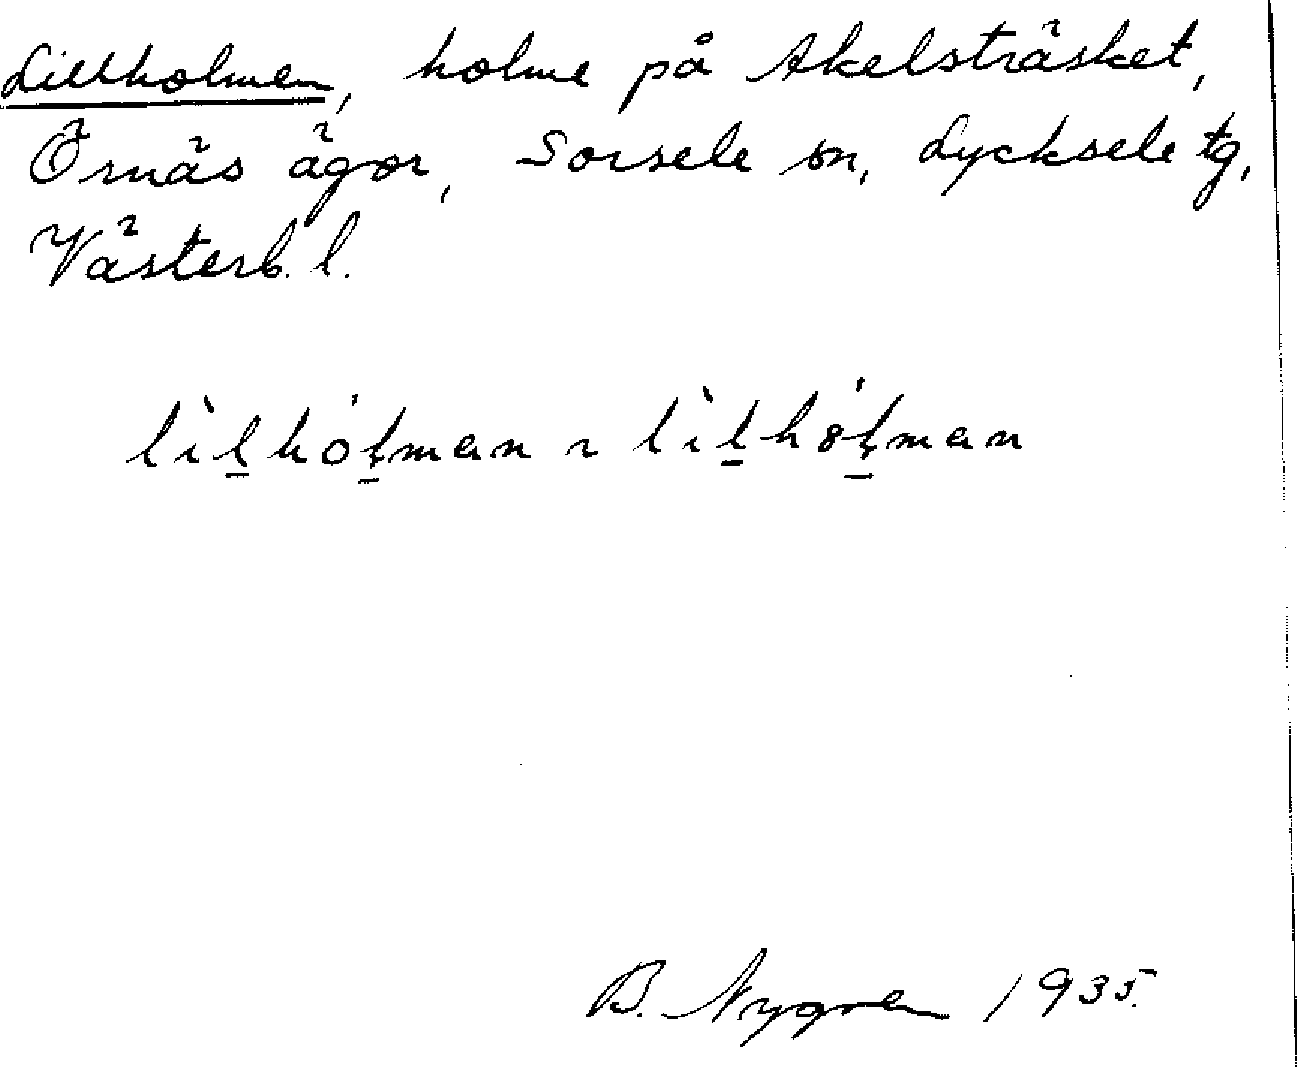 Lillholmen, holme på Akelsträsket,
Örnäs ägor, Sorsele sn, Lycksele tg,
Västerb. l.
lìl̲hólman ~ lìl̲hølman
B. Nygren 1935.